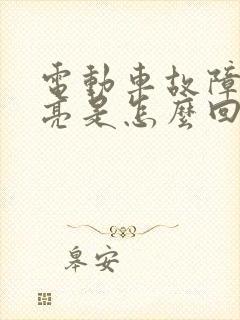 電動車故障
亮是怎麼回
皋安